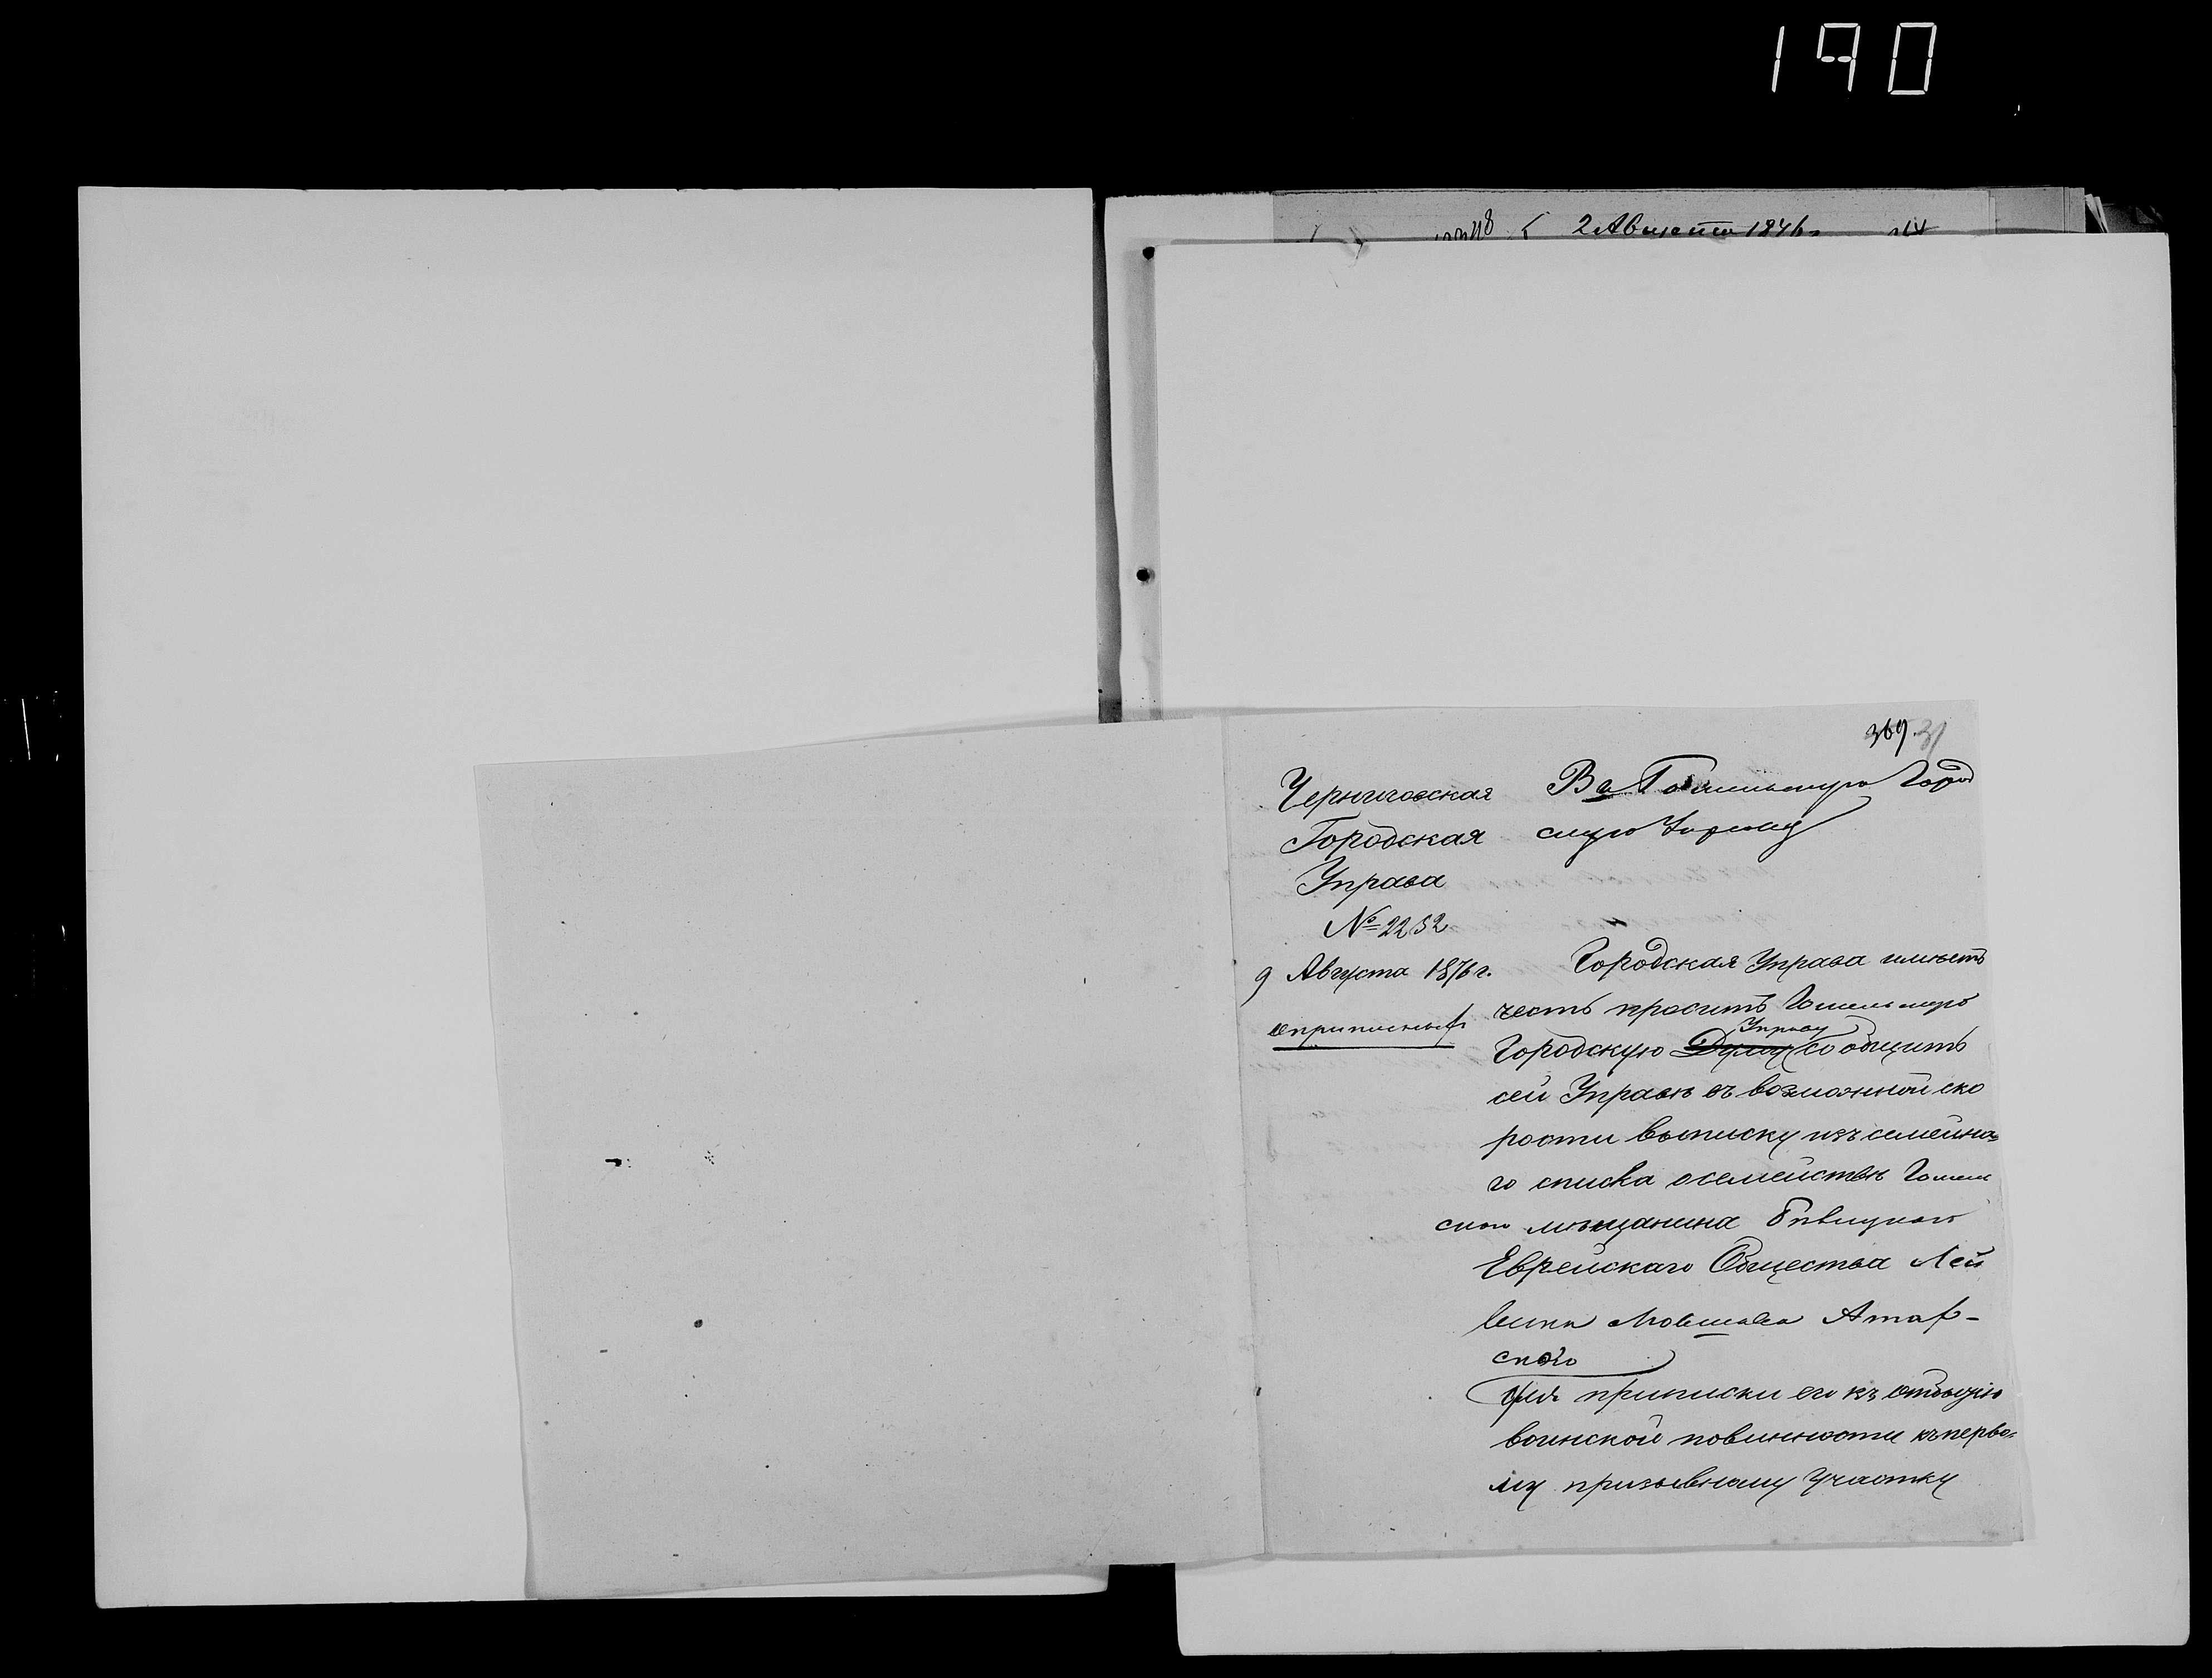 190
2 Августа 1876 г
369. 31
Черниговская
Городская
Управа
№ 2252
9 Августа 1876 г.
о припискѣ
Въ Гомельскую Город
скую Управу
Городская Управа имѣетъ
честь просить Гомельскую
Городскую Думу Управу сообщить
сей Управѣ въ возможной ско
рости выписку изъ семейна=
го списка о семействѣ Гомель
скаго мѣщанина Бѣлицкаго
Еврейскаго Общества Лей
бика Мовшова Атар-
скаго
для приписки его къ отбытію
воинской повинности къ перво=
му призывному участку